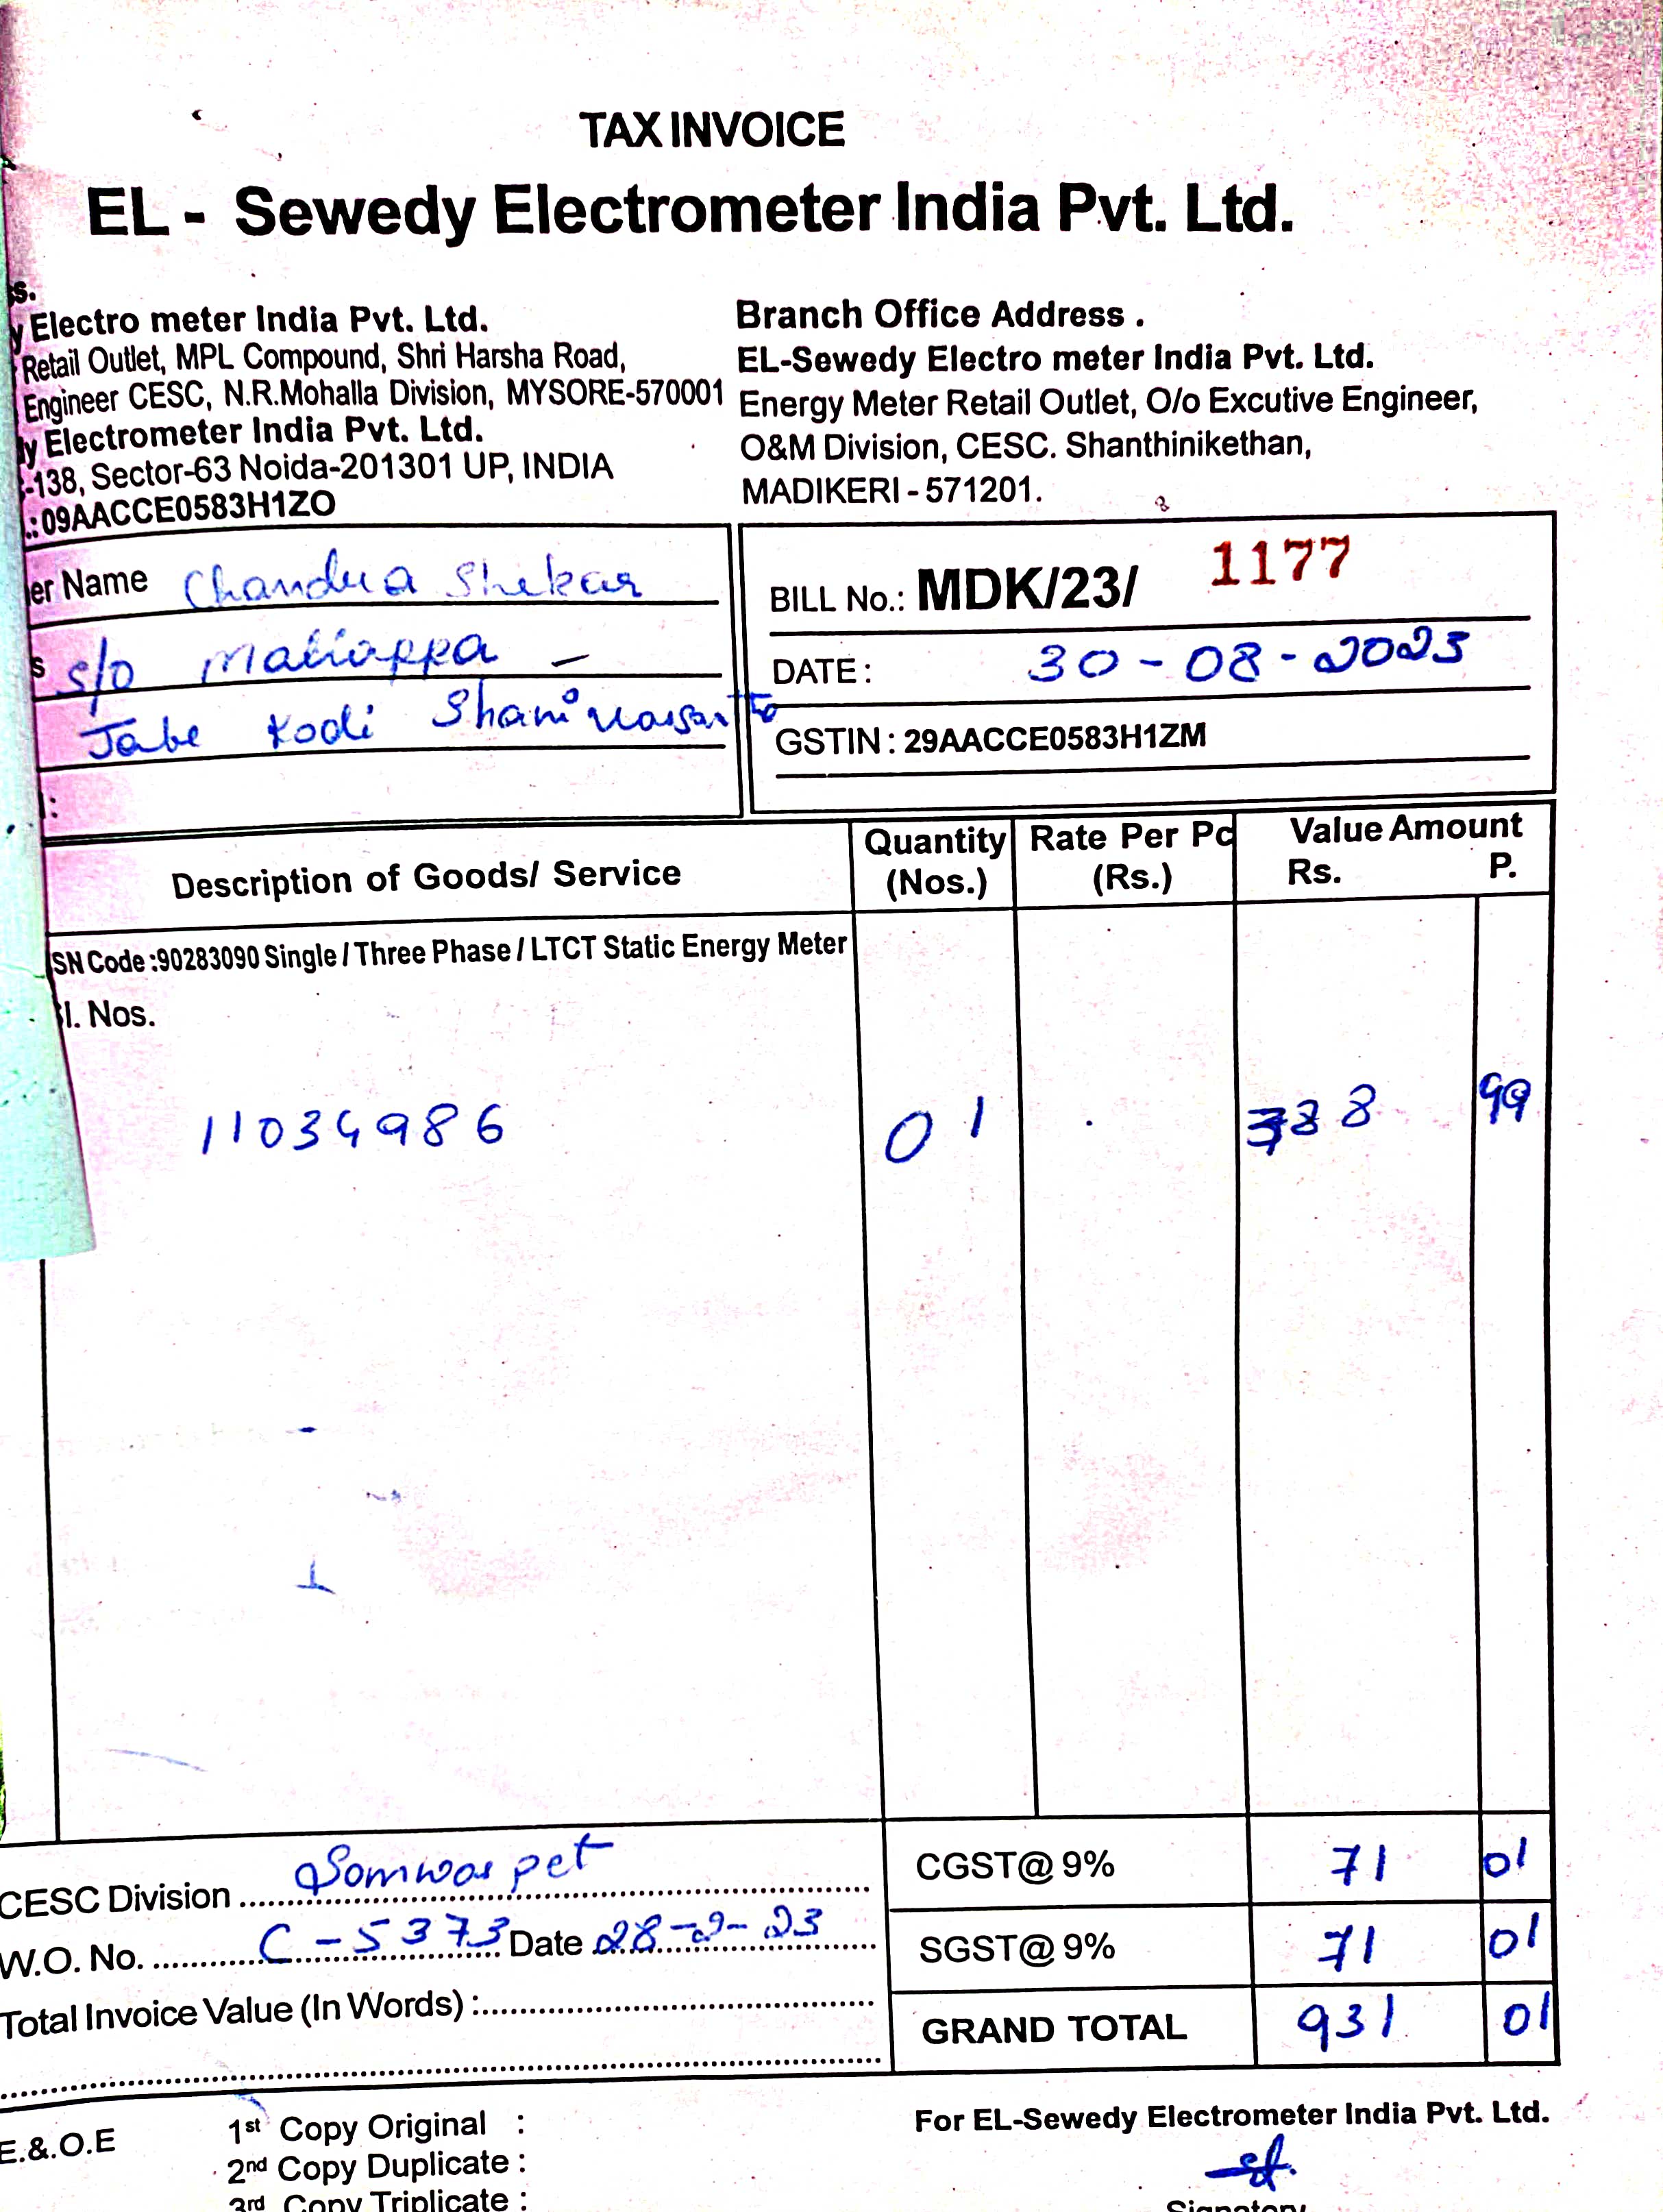 TAX INVOICE
EL - Sewedy Electrometer India Pvt. Ltd.
s.
y Electro meter India Pvt. Ltd.
Retail Outlet, MPL Compound, Shri Harsha Road,
Engineer CESC, N.R.Mohalla Division, MYSORE-570001
y Electrometer India Pvt. Ltd.
-138, Sector-63 Noida-201301 UP, INDIA
.:09AACCE0583H1ZO
Branch Office Address .
EL-Sewedy Electro meter India Pvt. Ltd.
Energy Meter Retail Outlet, O/o Excutive Engineer,
O&M Division, CESC. Shanthinikethan,
MADIKERI - 571201.
er Name Chandra Shekar
s s/o
Kodi
:
BILL No.: MDK/23/ 1177
DATE : 30-08-2023
GSTIN : 29AACCE0583H1ZM
Description of Goods/ Service Quantity (Nos.) Rate Per Pc (Rs.) Value Amount Rs. P.
SN Code :90283090 Single / Three Phase / LTCT Static Energy Meter
l. Nos.
11034986 01 788 99
CESC Division Somwarpet
W.O. No. C-5373 Date 28-2-23
Total Invoice Value (In Words) :
CGST@ 9% 71 01
SGST@ 9% 71 01
GRAND TOTAL 931 01
E.&.O.E
1st Copy Original :
2nd Copy Duplicate :
3rd Copy Triplicate :
For EL-Sewedy Electrometer India Pvt. Ltd.
Signatory